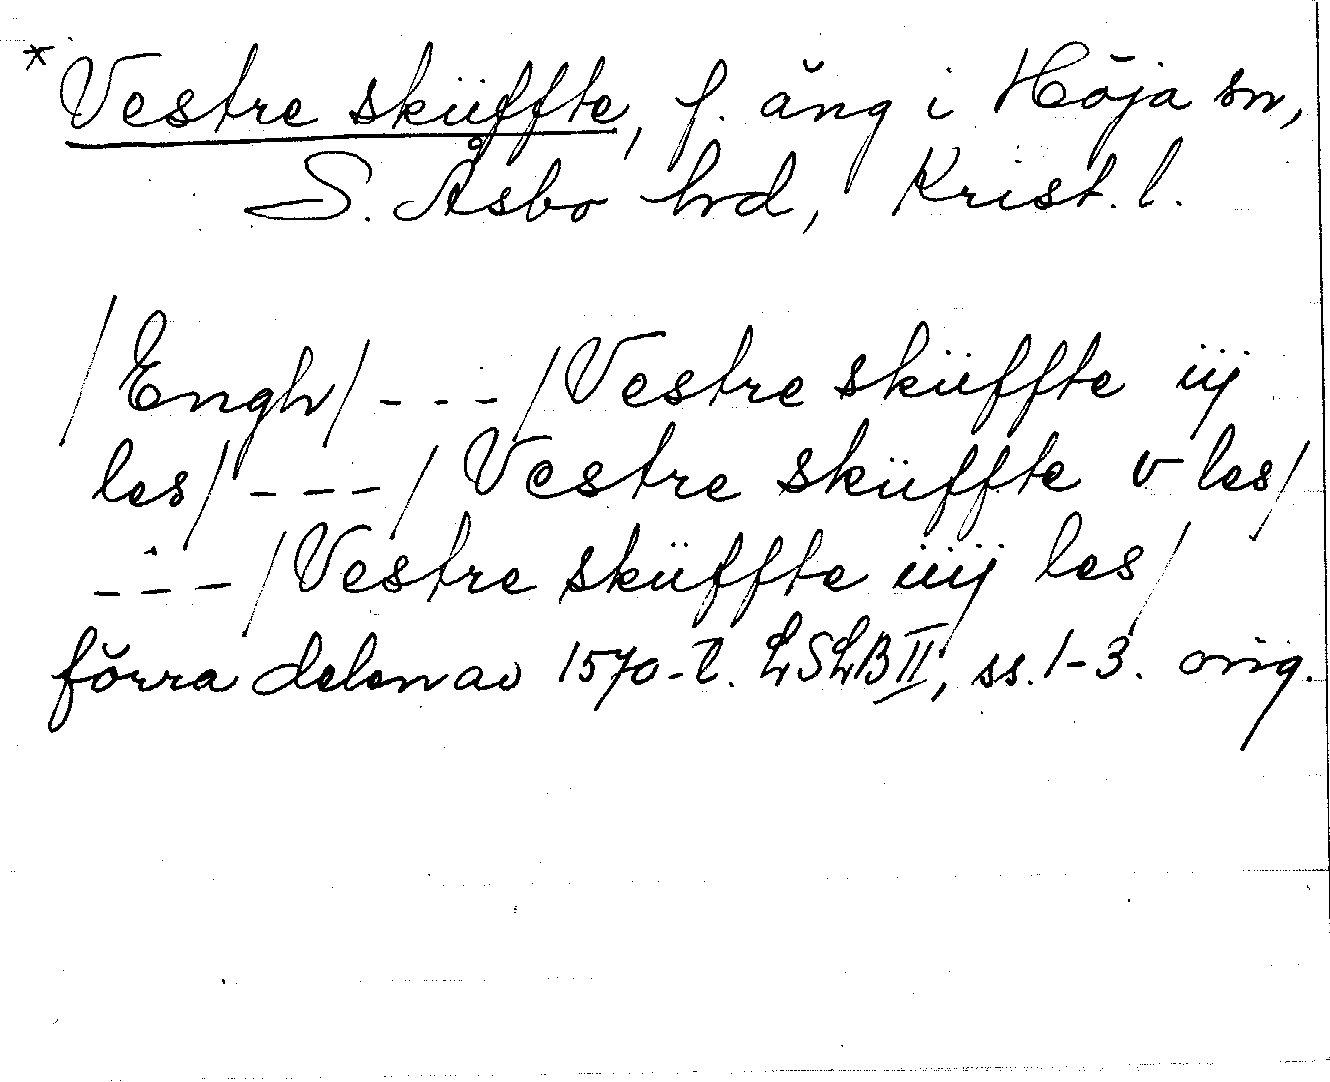 * Vestre sküffte, f. äng i Höja sn,
S. Åsbo hrd, Krist. l.
/Engh/ - - - /Vestre sküffte iij
les/ - - - / Vestre sküffte v les/
- - - /Vestre sküffte iiij les/
förra delen av 1570-t. LSLB II, ss. 1-3. orig.